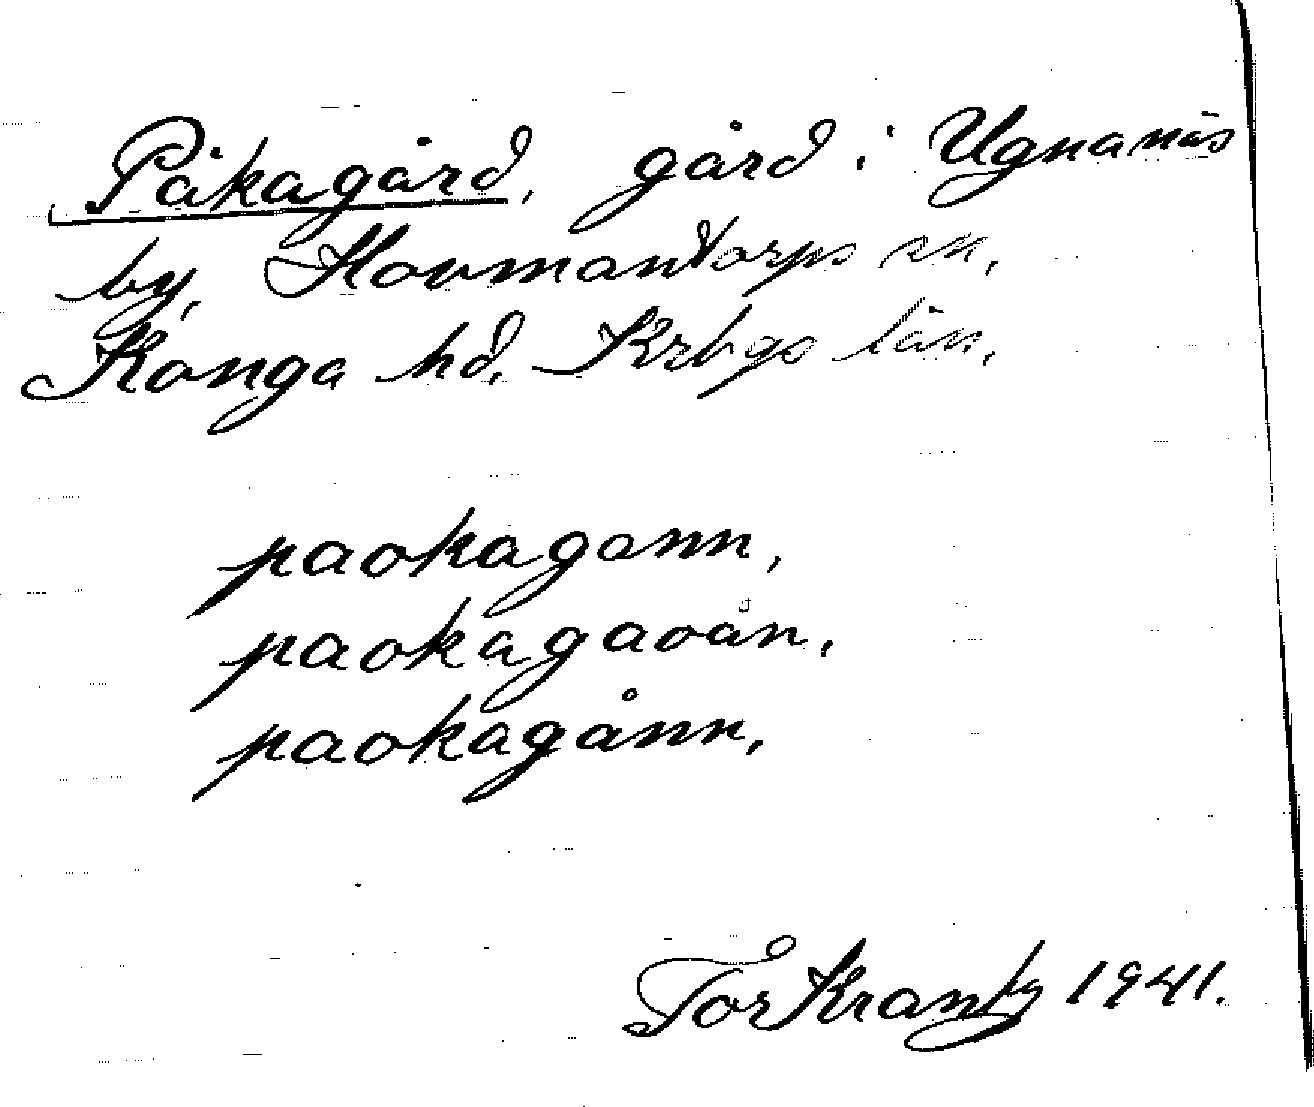 Påkagård, gård i Ugnanäs
by, Hovmantorps sn,
Konga hd. Krbgs län.
paokagann,
paokagaoån,
paokagånn,
Tor Krantz 1941.